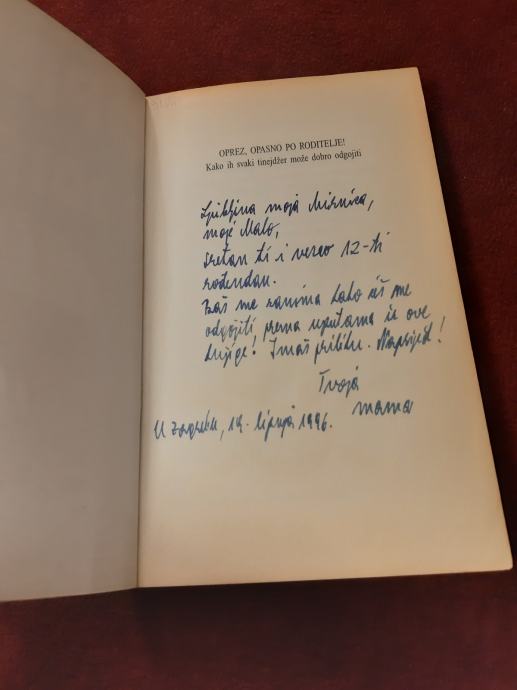 OPREZ, OPASNO PO RODITELJE!
Kako ih svaki tinejdžer može dobro odgojiti
moja
moje Malo,
sretan ti i veseo 12-ti
rođendan.
Baš me zanima kako ćeš me
odgojiti prema uputama iz ove
knjige! Imaš priliku. Naprijed!
Tvoja
mama
U Zagrebu, 19. lipnja 1996.